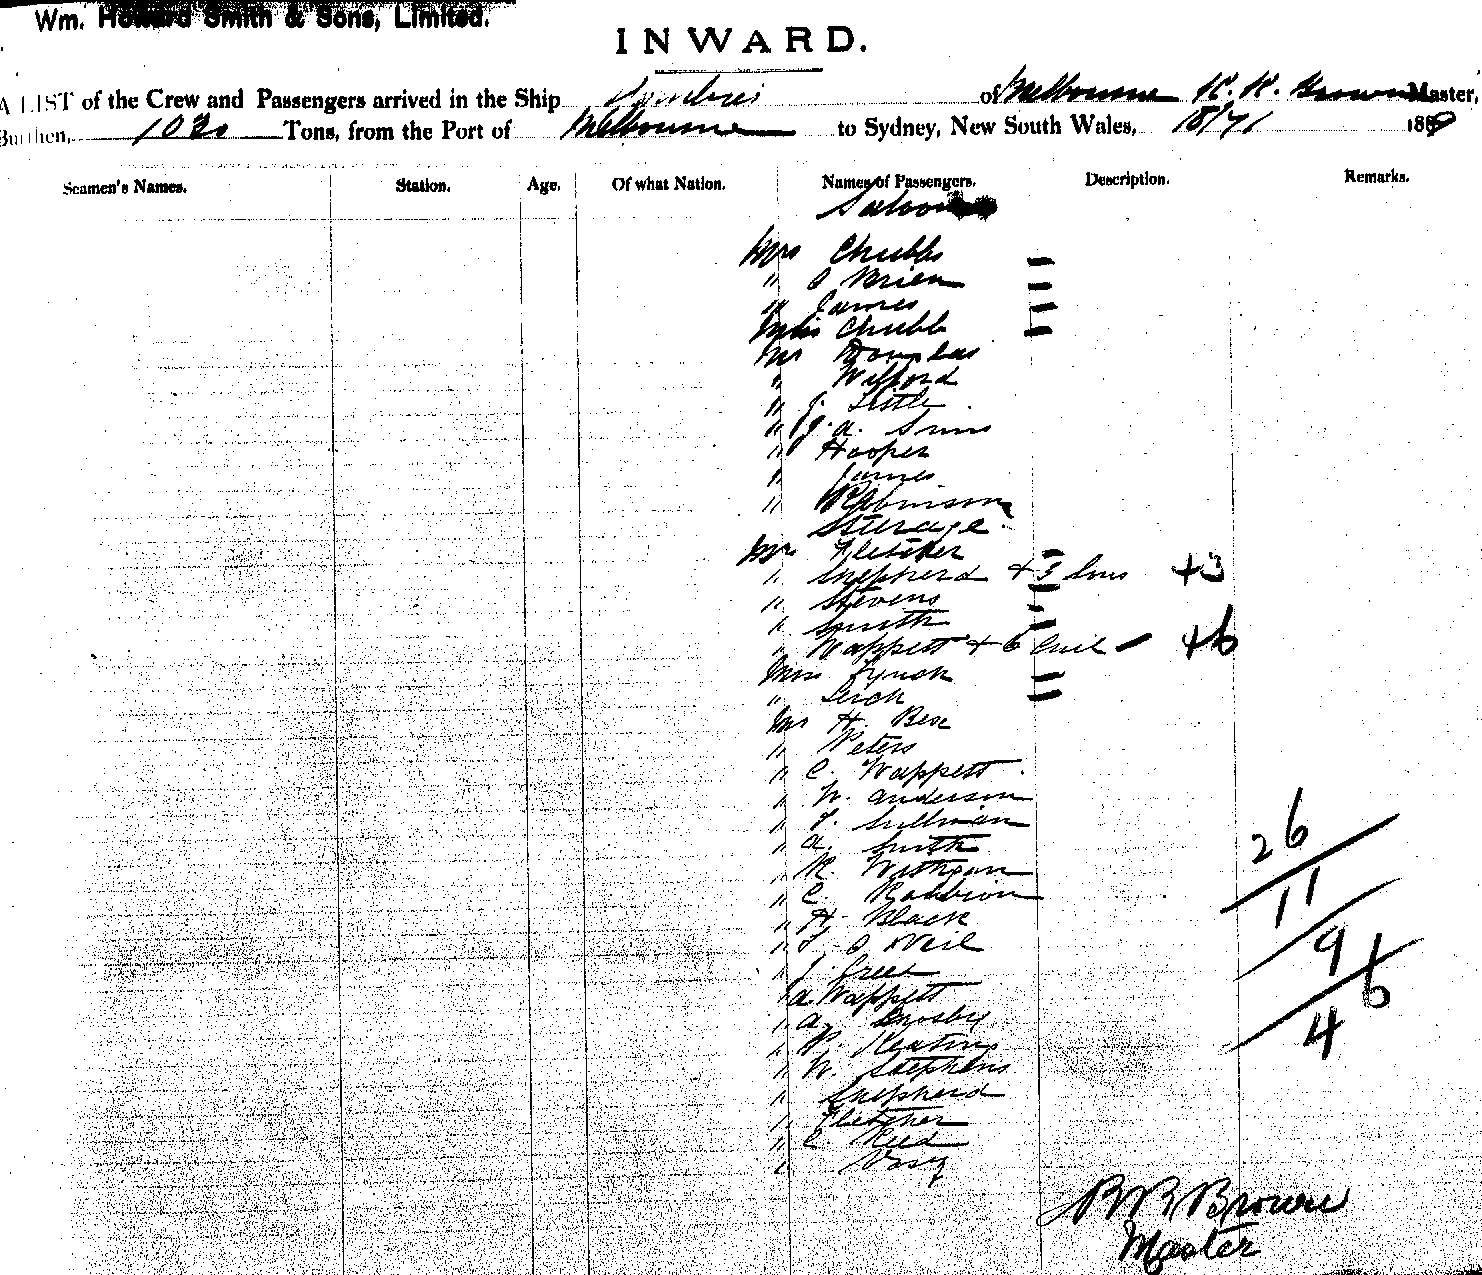 Wm. Howard Smith & Sons, Limited.
INWARD.
A LIST of the Crew and Passengers arrived in the Ship of Melbourne R. R. Brown Master,
Burthen, 1030 Tons, from the Port of Melbourne to Sydney, New South Wales, 188
Seamen's Names. Station. Age. Of what Nation. Names of Passengers. Description. Remarks.
Saloon
Mrs Chubbs
" O Brien
" James
Miss Chubb
Mr Douglas
" Walford
" J. Little
" J. A. Sims
" Hooper
" James
" Robinson
Steerage
Mrs Fletcher
" Shepherd + 3 +3
" Stevens
" Smith
" Wappett + 6 +6
Miss Lynch
"
Mr H. Bex
" Peters
" C. Wappett
" W. Anderson
" T. Sullivan
" A. Smith
" R.
" C.
" H. Black
" T. O Neil
" J.
" A Wappett
" A. Crosby
" P. Keating
" W. Stephens
" Shepherd
" Fletcher
" C Reed
"
26
11
9
6
4
R R Brown
Master